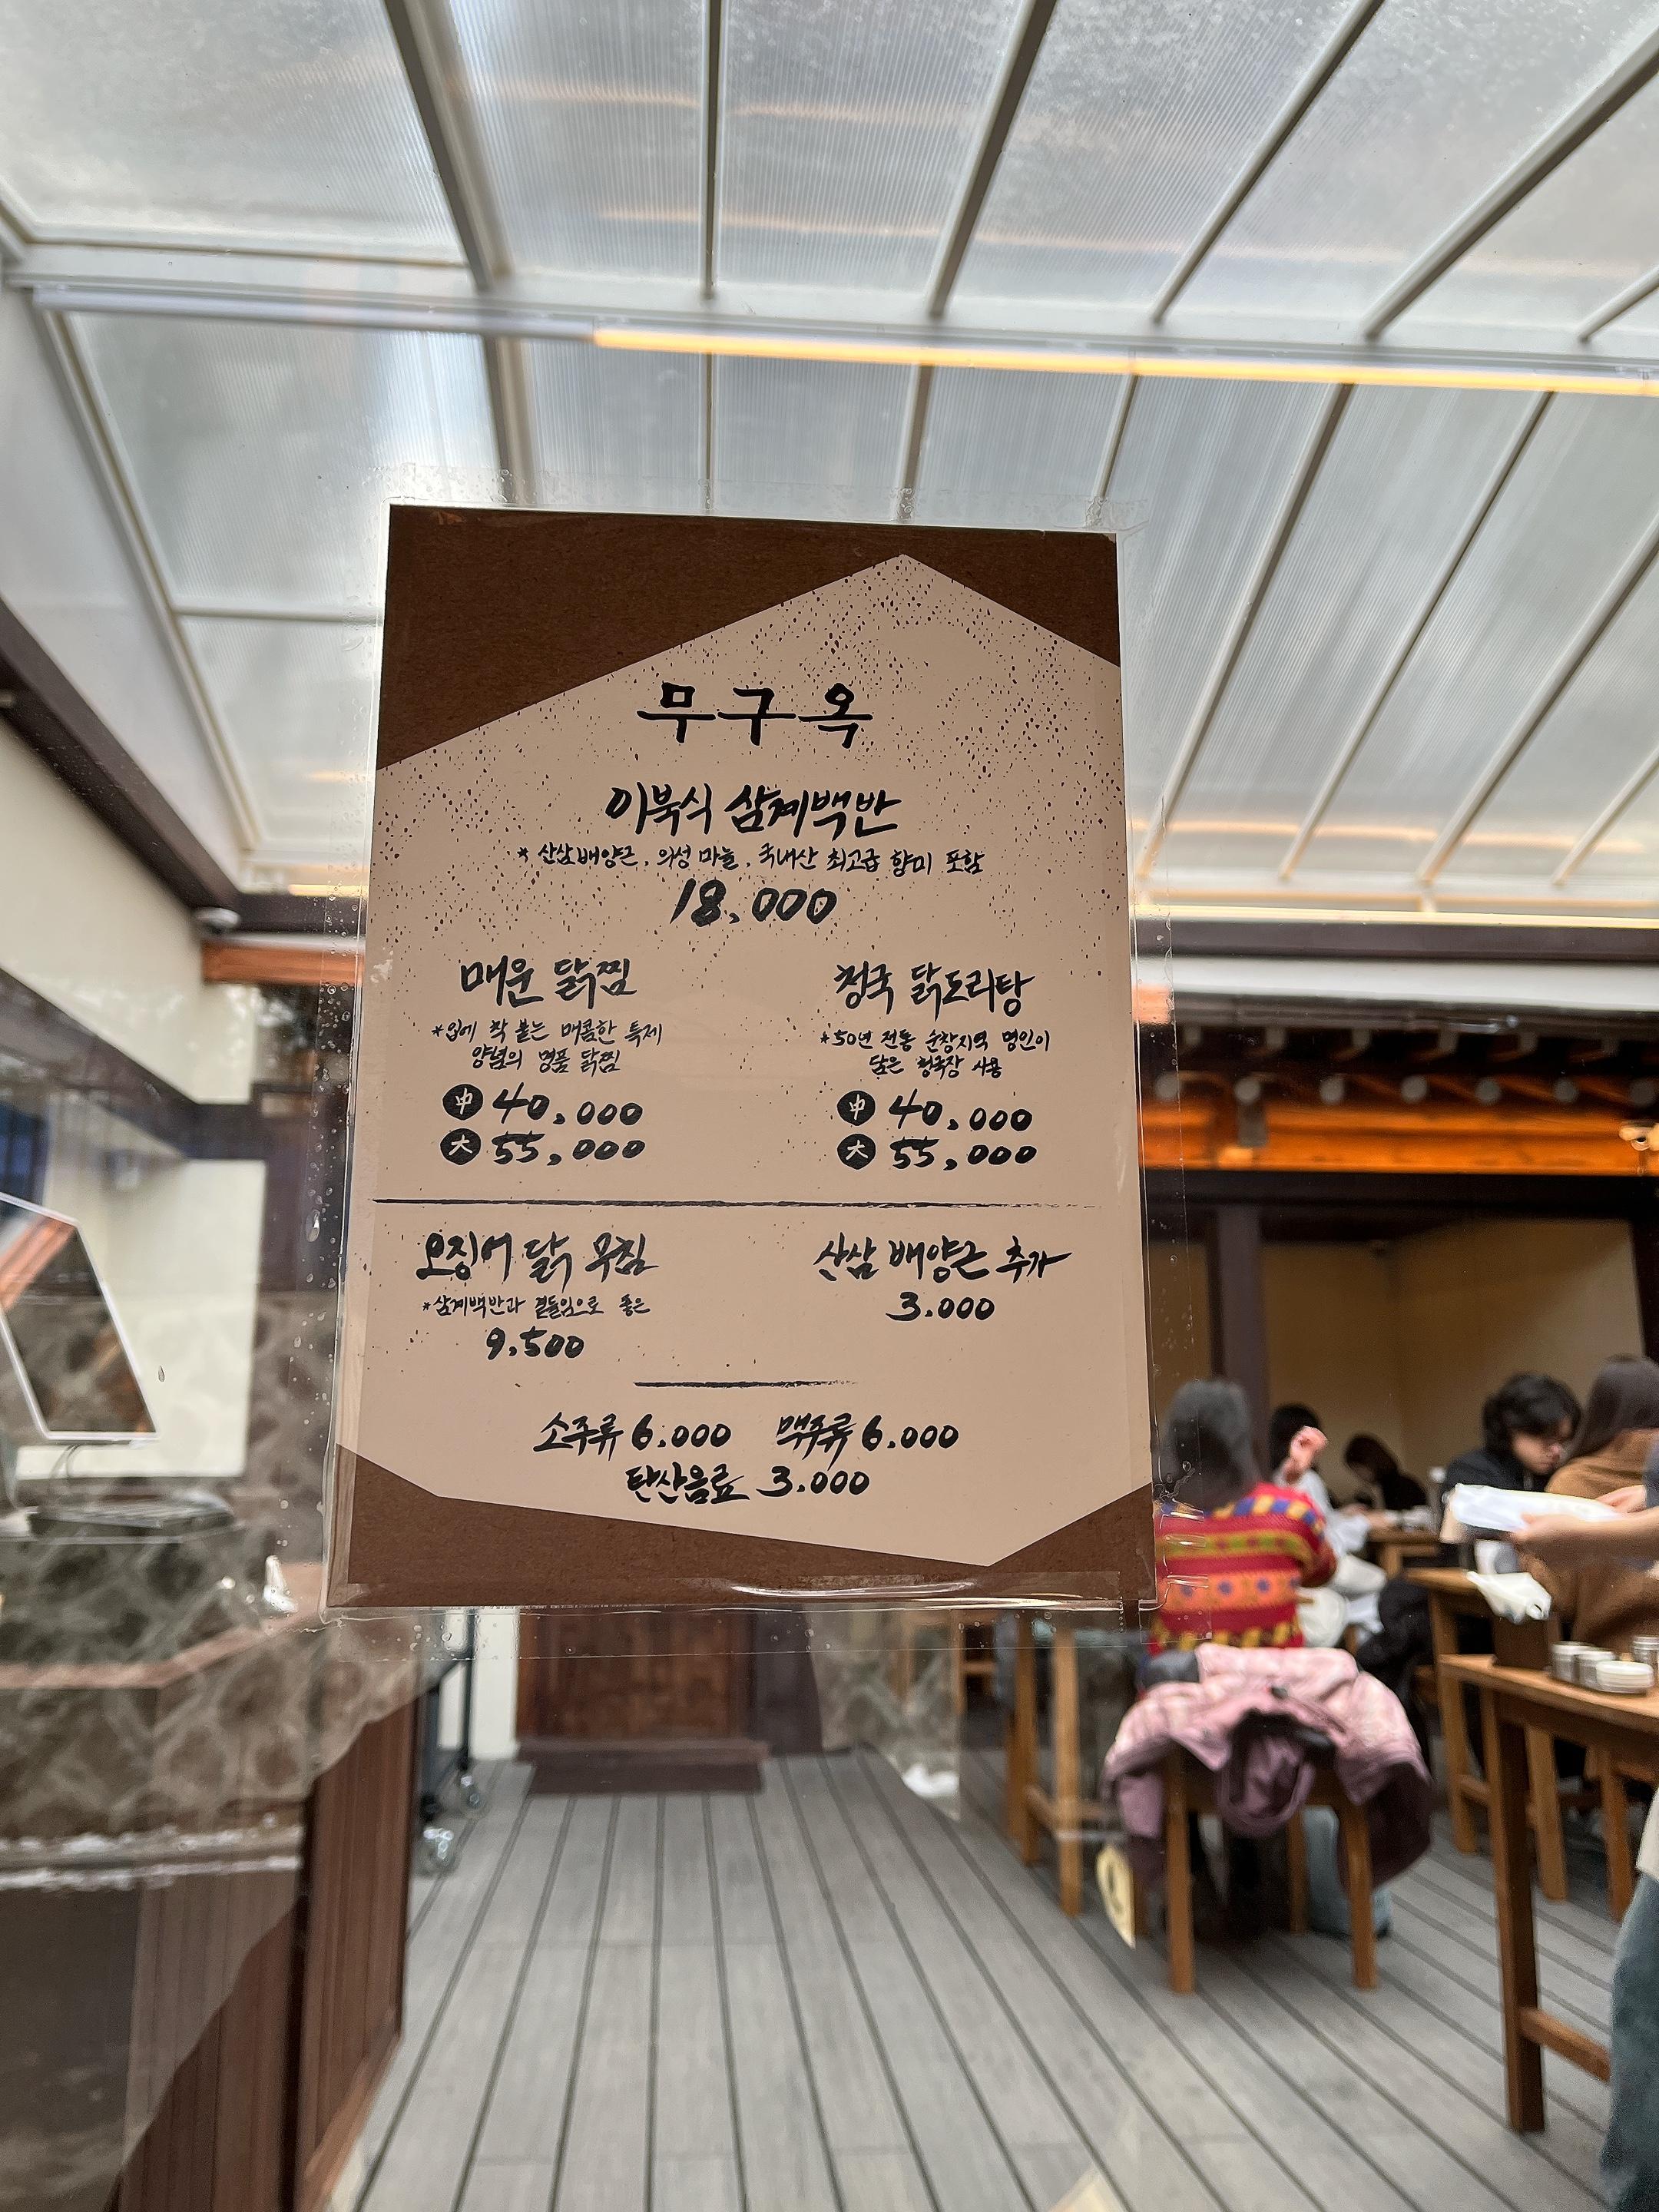 무구옥
이북식 삼계백반
* 산삼배양근, 의성 마늘, 국내산 최고급 향미 포함
18,000
매운 닭찜
*입에 착 붙는 매콤한 특제
양념의 명품 닭찜
中 40,000
大 55,000
청국 닭도리탕
*50년 전통 순창지역 명인이
담은 청국장 사용
中 40,000
大 55,000
오징어 닭 무침
*삼계백반과 곁들임으로 좋은
9,500
산삼 배양근 추가
3.000
소주류 6.000 맥주류 6.000
탄산음료 3.000